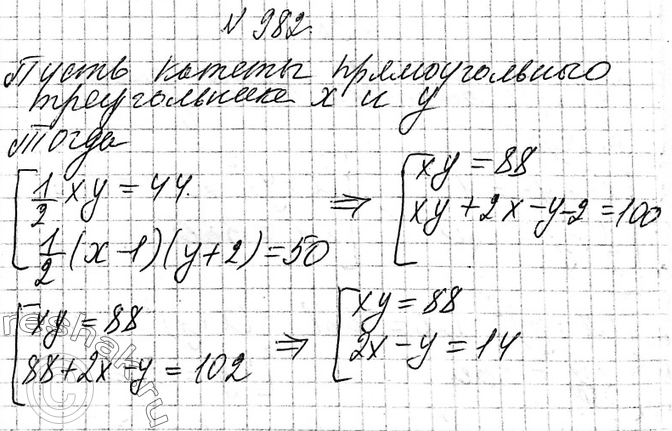 N 982.
Пусть катеты прямоугольного
треугольника x и y
Тогда
[ 1/2 xy = 44. ⇒ [ xy = 88
1/2 (x-1)(y+2) = 50 xy + 2x - y - 2 = 100
[ xy = 88 ⇒ [ xy = 88
88 + 2x - y = 102 2x - y = 14
reshak.ru